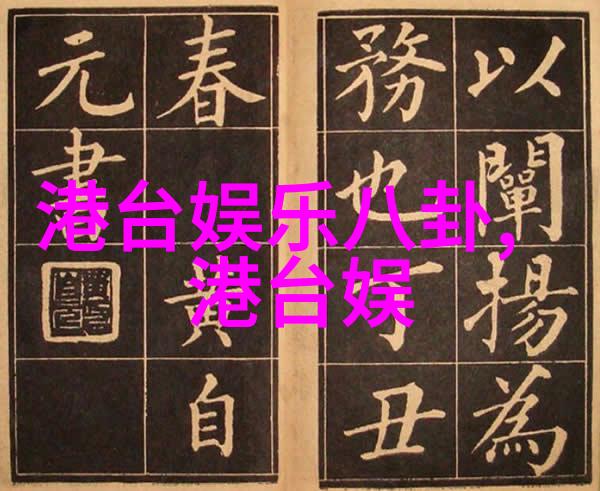 以闡揚為
務也丁丑
春黄自
元書
港台娱乐八卦,
港台娱